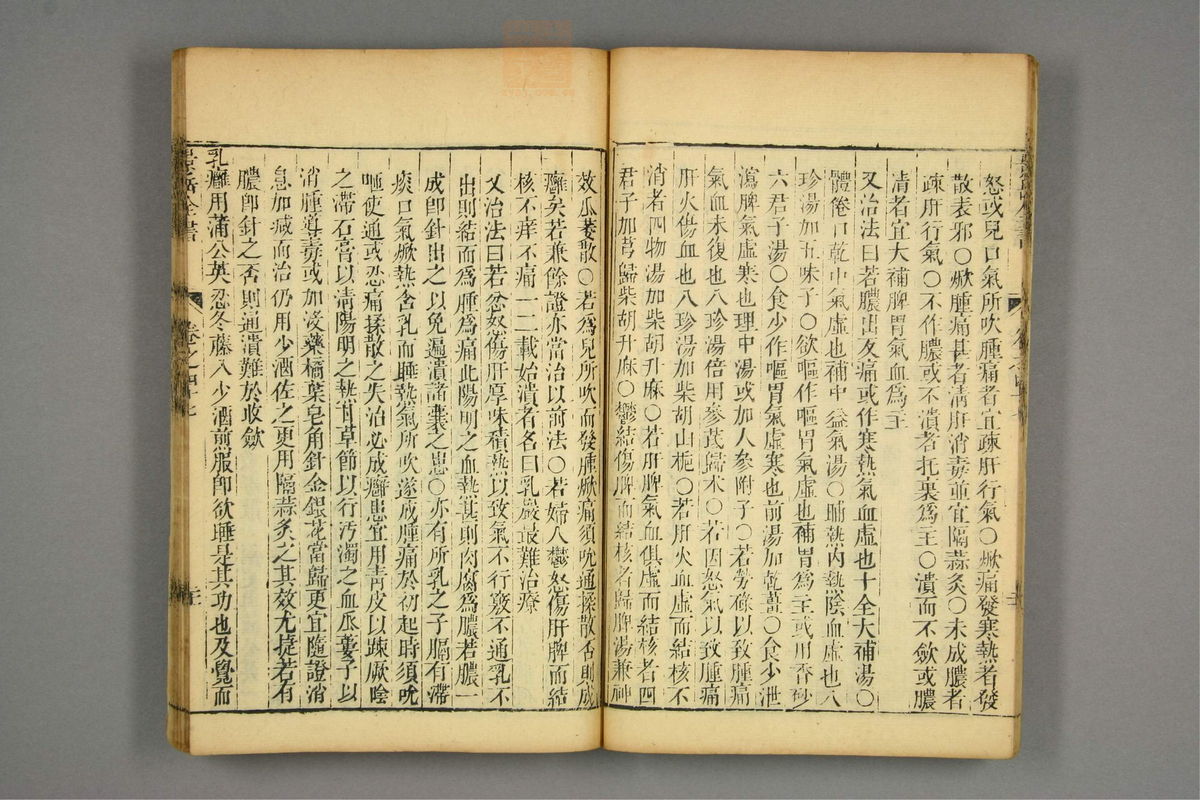 怒或兒口氣所吹腫痛者宜疎肝行氣〇焮痛發寒熱者發
散表邪〇焮腫痛甚者淸肝消毒並宜隔蒜灸〇未成膿者
疎肝行氣〇不作膿或不潰者托裏爲主〇潰而不斂或膿
清者宜大補脾胃氣血爲主
又治法曰若膿出反痛或作寒熱氣血虛也十全大補湯〇
體倦口乾中氣虛也補中益氣湯〇晡熱內熱陰血虛也八
珍湯加五味子〇欲嘔作嘔胃氣虛也補胃爲主或用香砂
六君子湯〇食少作嘔胃氣虛寒也前湯加乾薑〇食少泄
瀉脾氣虛寒也理中湯或加人參附子〇若勞碌以致腫痛
氣血未復也八珍湯倍用參芪歸术〇若因怒氣以致腫痛
肝火傷血也八珍湯加柴胡山梔〇若肝火血虛而結核不
消者四物湯加柴胡升麻〇若肝脾氣血俱虛而結核者四
君子加芎歸柴胡升麻〇鬱結傷脾而結核者歸脾湯兼神
效瓜蔞散〇若爲兒所吹而發腫焮痛須吮通揉散否則成
癰矣若兼餘證亦當治以前法〇若婦人鬱怒傷肝脾而結
核不痒不痛一二載始潰者名曰乳巖最難治療
又治法曰若忿怒傷肝厚味積熱以致氣不行竅不通乳不
出則結而爲腫爲痛此陽明之血熱甚則肉腐爲膿若膿一
成卽針出之以免遍潰諸囊之患〇亦有所乳之子膈有滯
痰口氣焮熱含乳而睡熱氣所吹遂成腫痛於初起時須吮
咂使通或忍痛揉散之失治必成癰患宜用靑皮以疎厥陰
之滯石膏以淸陽明之熱甘草節以行汚濁之血瓜蔞子以
消腫導毒或加沒藥橘葉皂角針金銀花當歸更宜隨證消
息加減而治仍用少酒佐之更用隔蒜灸之其效尤捷若有
膿卽針之否則通潰難於收斂
乳癰用蒲公英忍冬藤入少酒煎服卽欲睡是其功也及覺而
卷之四十七